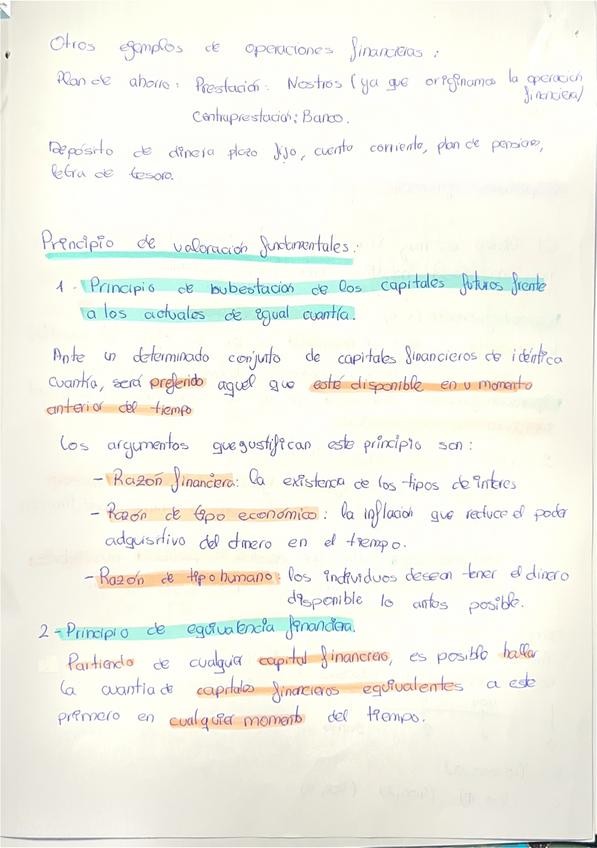 Otros ejemplos de operaciones financieras :
Plan de ahorro : Prestación : Nostros (ya que originamos la operación
financiera)
Contraprestación : Banco.
Depósito de dinero plazo fijo, cuenta corriente, plan de pensiones,
letra de tesoro.
Principio de valoración fundamentales :
1. Principio de subestación de los capitales futuros frente
a los actuales de igual cuantía.
Ante un determinado conjunto de capitales financieros de idéntica
cuantía, será preferido aquel que esté disponible en u momento
anterior del tiempo
Los argumentos que justifican este principio son :
- Razón financiera : la existencia de los tipos de interés
- Razón de tipo económico : la inflación que reduce el poder
adquisitivo del dinero en el tiempo.
- Razón de tipo humano : los individuos desean tener el dinero
disponible lo antes posible.
2 - Principio de equivalencia financiera.
Partiendo de cualquier capital financiero, es posible hallar
la cuantía de capitales financieros equivalentes a este
primero en cualquier momento del tiempo.